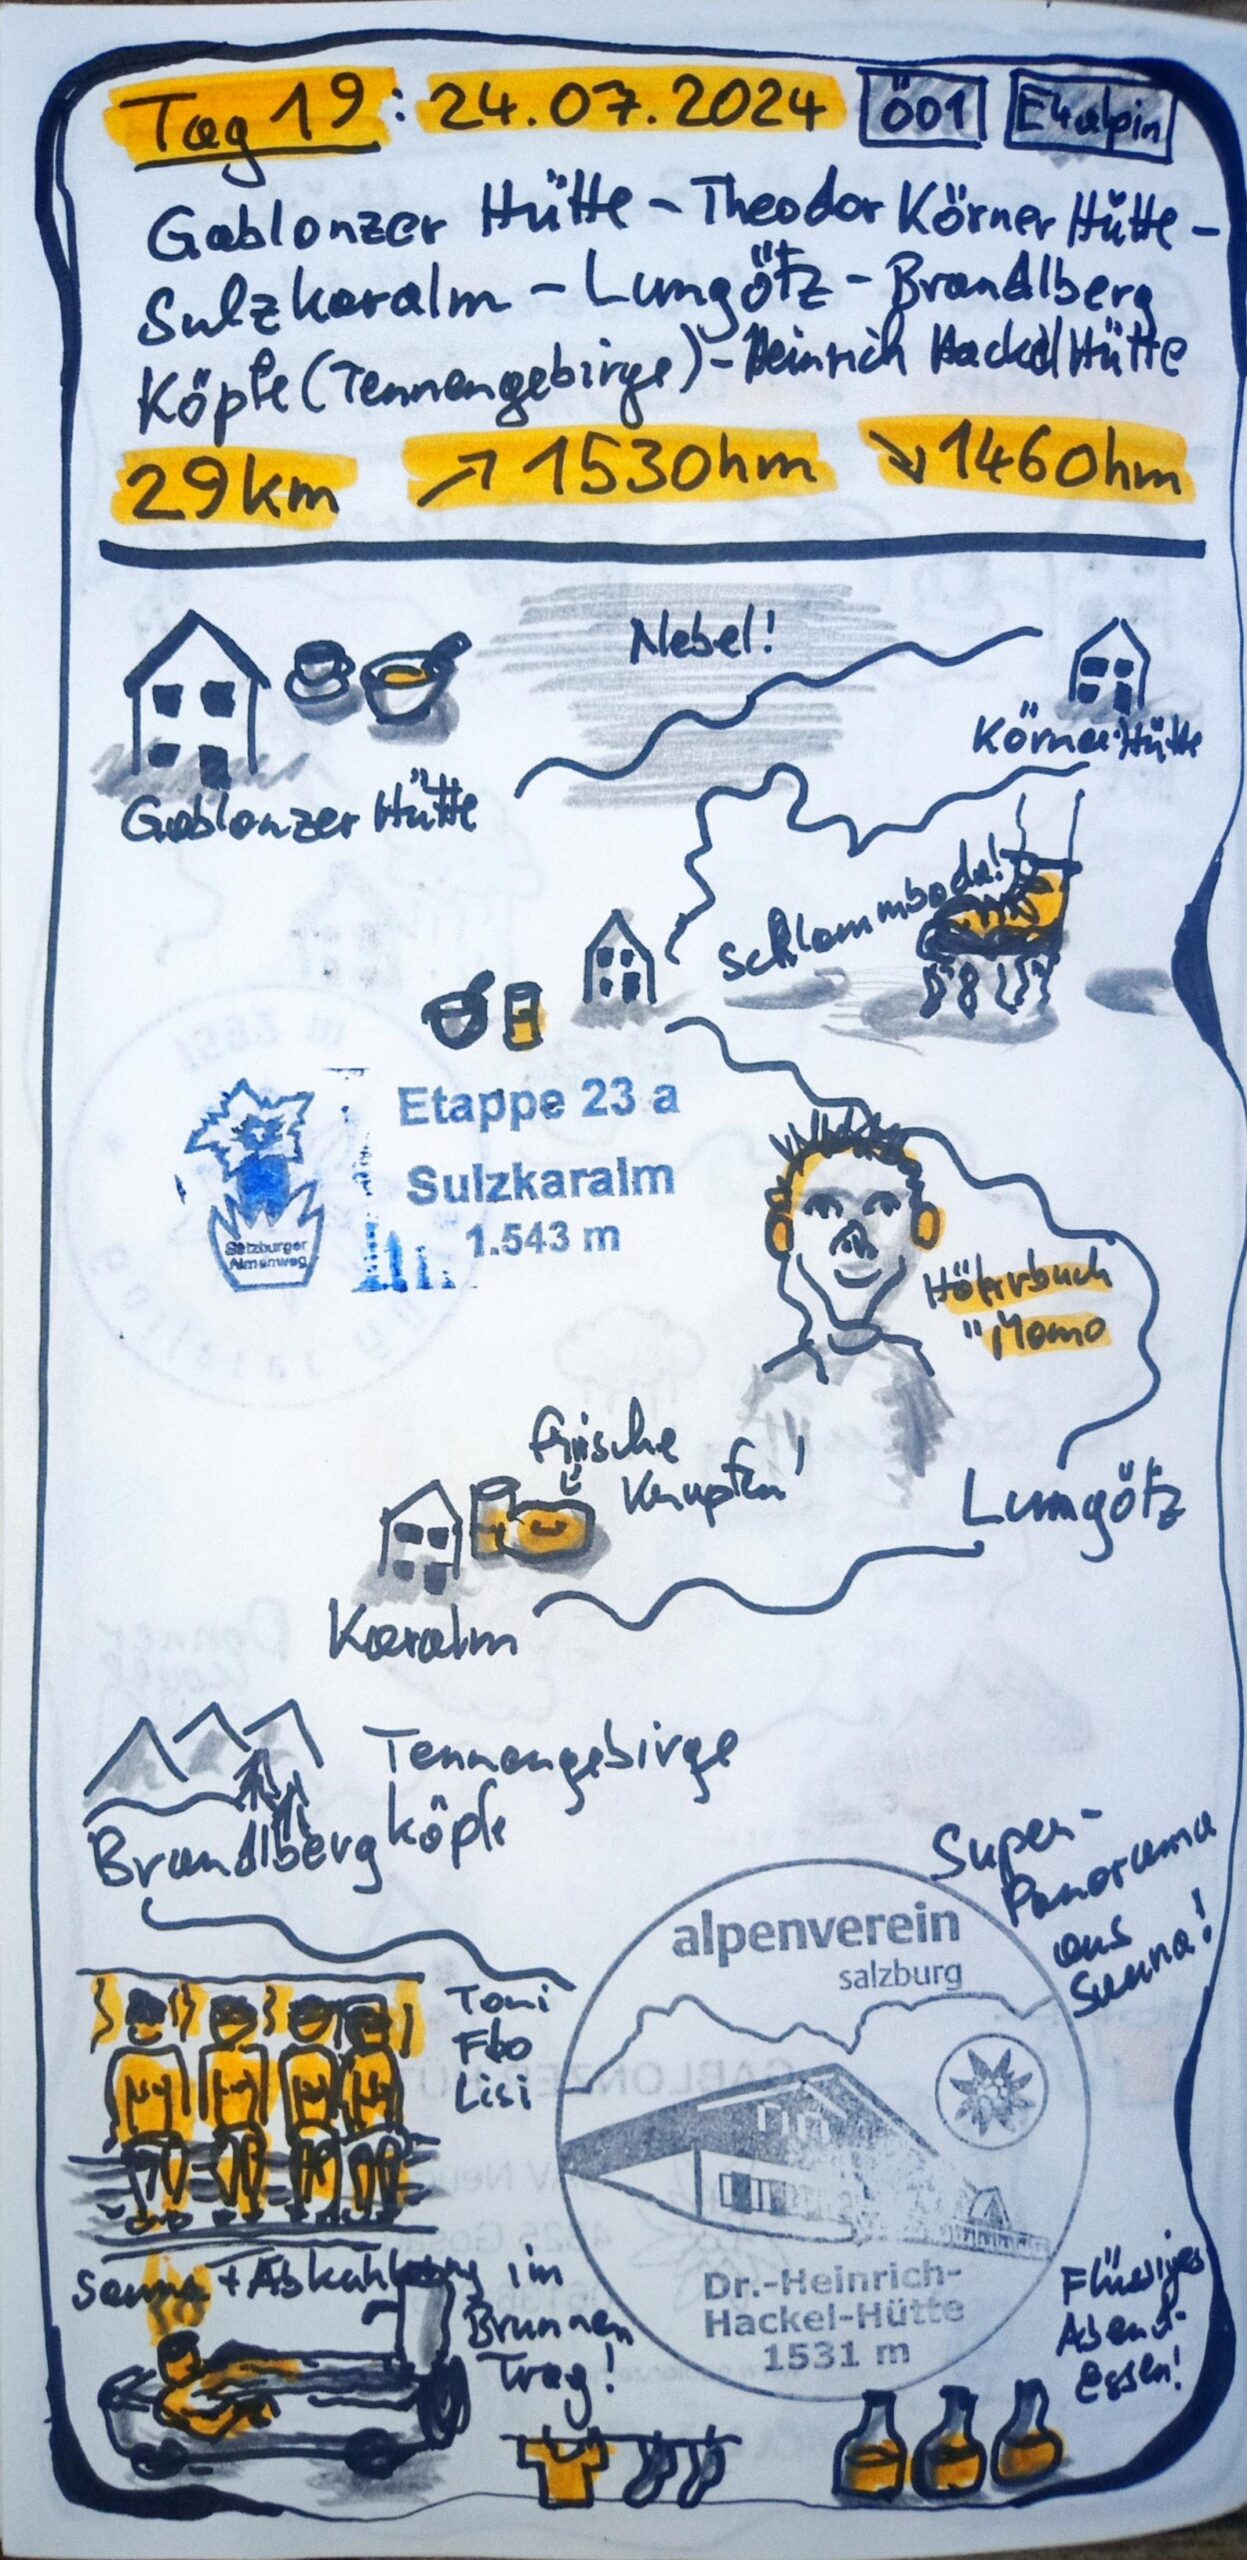 Tag 19: 24.07.2024 Ö01 E4alpin
Gablonzer Hütte - Theodor Körner Hütte -
Sulzkaralm - Lungötz - Brandlberg
Köpfe (Tennengebirge) - Heinrich Hackel Hütte
29km ↗1530hm ↘1460hm
Nebel!
Körner Hütte
Gablonzer Hütte
Schlammboda!
Etappe 23 a
Sulzkaralm
1.543 m
Salzburger
Almenweg
Höhrbuch
"Momo
frische
Krapfen!
Lungötz
Karalm
Tennengebirge
Brandlberg köpfe
Super-
Panorama
aus
Sauna!
alpenverein
salzburg
Toni
Flo
Lisi
Dr.-Heinrich-
Hackel-Hütte
1531 m
Sauna + Abkühlung im
Brunnen
Trog!
Flüssiges
Abend-
Essen!